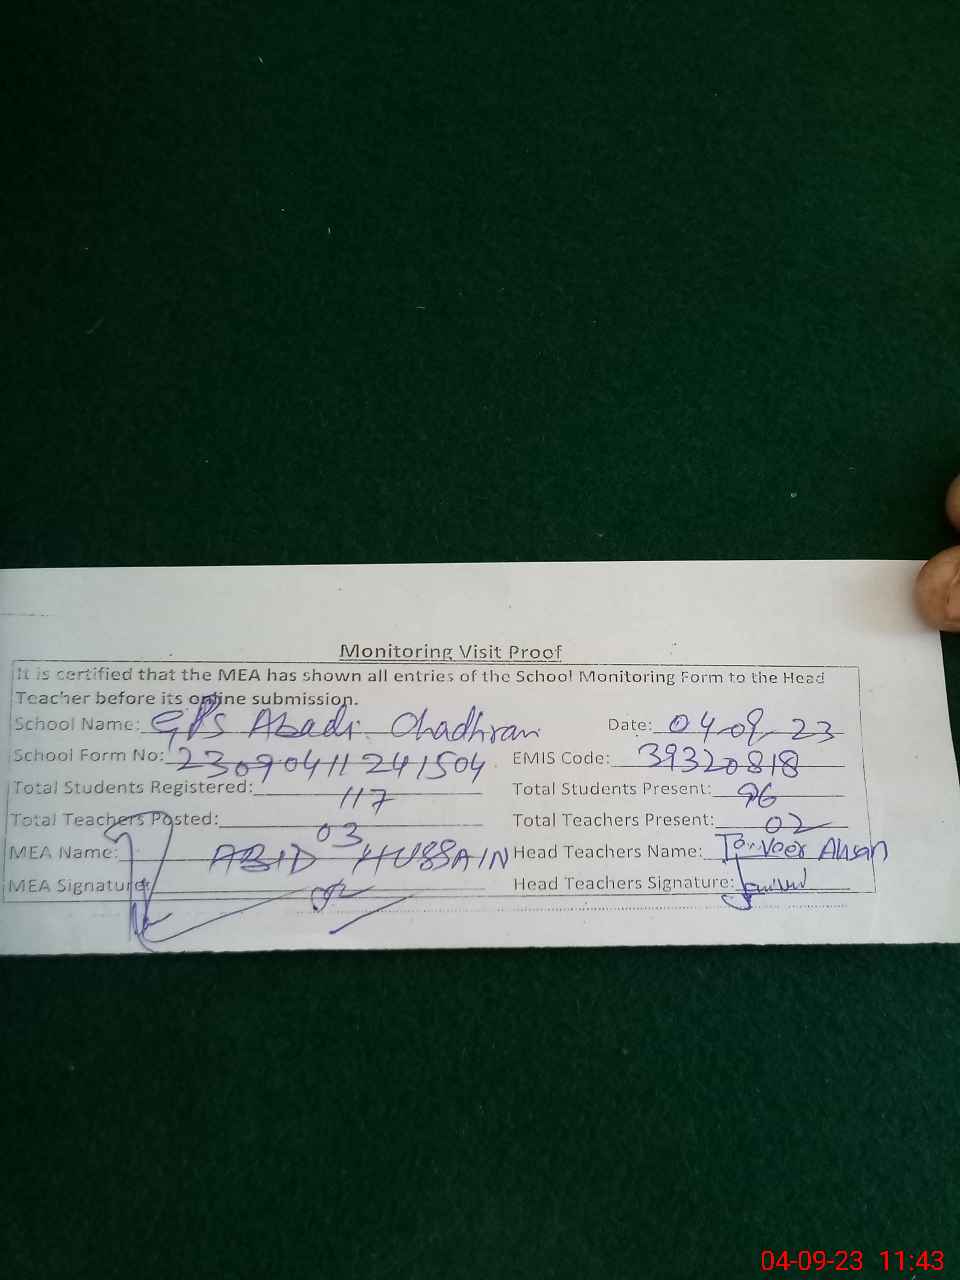 Monitoring Visit Proof
It is certified that the MEA has shown all entries of the School Monitoring Form to the Head
Teacher before its online submission.
School Name: GPS Abadi Chadhran Date: 04-09-23
School Form No: 23090411241504 EMIS Code: 39320818
Total Students Registered: 117 Total Students Present: 96
Total Teachers Posted: 03 Total Teachers Present: 02
MEA Name: ABID HUSSAIN Head Teachers Name: Tanveer Ahsan
MEA Signature: Head Teachers Signature:
04-09-23 11:43